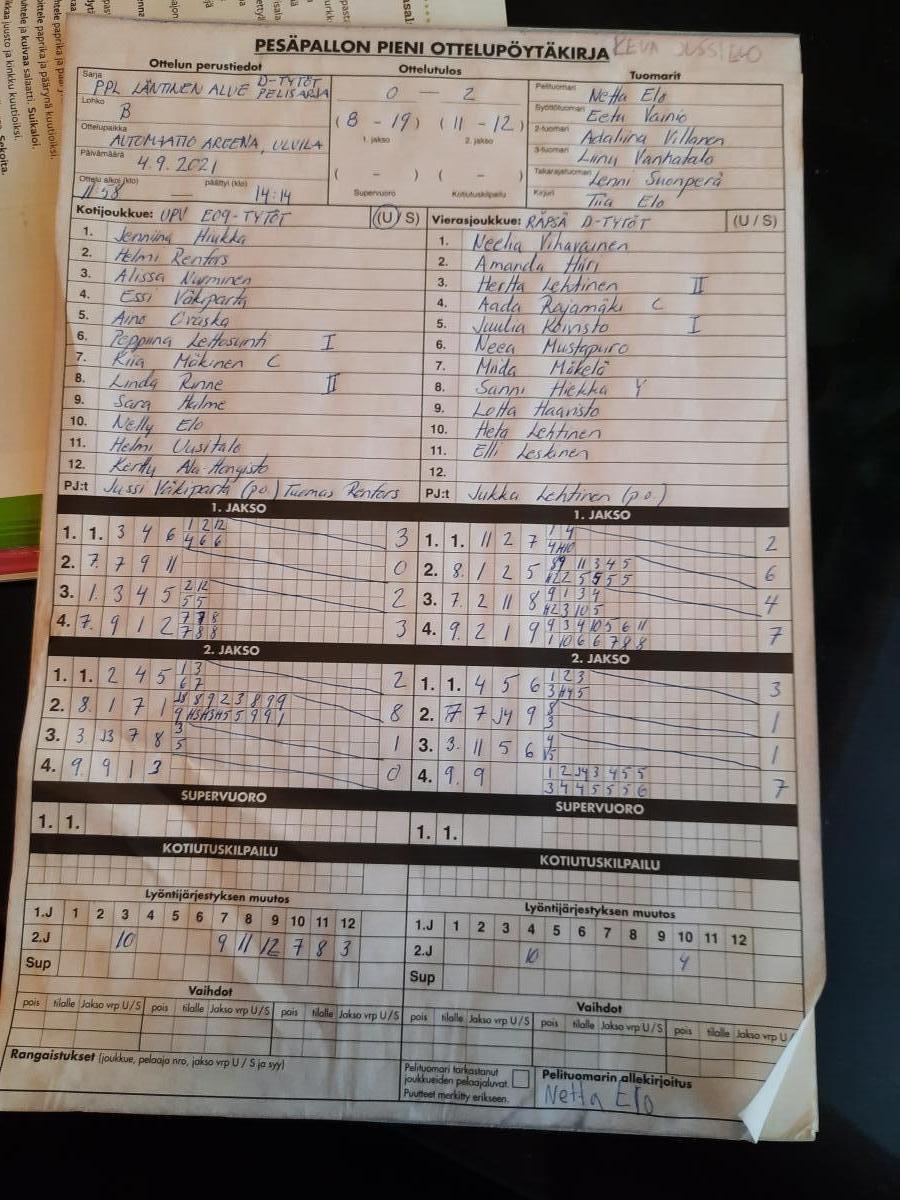 PESÄPALLON PIENI OTTELUPÖYTÄKIRJA
Ottelun perustiedot
Sarja PPL LÄNTINEN ALUE D-TYTÖT PELISARJA
Lohko B
Ottelupaikka AUTOMAATIO AREENA, ULVILA
Päivämäärä 4.9.2021
Ottelu alkoi (klo) 11.58 päättyi (klo) 14:14
Ottelutulos
0 — 2
(8 - 19) (11 - 12)
1. jakso 2. jakso
( - ) ( - )
Supervuoro Kotiutuskilpailu
Tuomarit
Pelituomari Netta Elo
Syöttötuomari Eetu Vainio
2-tuomari Adaliina Villanen
3-tuomari Liinu Vanhatalo
Takarajatuomari Lenni Suonperä
Kirjuri Tiia Elo
Kotijoukkue: UPV E09-TYTÖT (U/ S)
1. Jenniina Hiukka
2. Helmi Renfors
3. Alissa Nurminen
4. Essi Väkiparta
5. Aino Uraska
6. Peppiina Lettosunti I
7. Kiia Mäkinen C
8. Linda Rinne II
9. Sara Halme
10. Nelly Elo
11. Helmi Uusitalo
12. Kertty Ala-Hongisto
PJ:t Jussi Väkiparta (p.o.) Tuomas Renfors
Vierasjoukkue: RÄPSÄ D-TYTÖT (U / S)
1. Neelia Vihavainen
2. Amanda Hiiri
3. Hertta Lehtinen II
4. Aada Rajamäki C
5. Juulia Koivisto I
6. Neea Mustapuro
7. Miida Mäkelä
8. Sanni Hiekka Y
9. Lotta Haavisto
10. Heta Lehtinen
11. Elli Leskinen
12.
PJ:t Jukka Lehtinen (p.o.)
1. JAKSO
1. 1. 3 4 6 1 2 12 3
4 6 6
2. 7. 7 9 11 0
3. 1. 3 4 5 2 12 2
5 5
4. 7. 9 1 2 7 7 8 3
7 8 8
1. JAKSO
1. 1. 11 2 7 1 4 2
2. 8. 1 2 5 6
3. 7. 2 11 8 9 1 3 4 4
4. 9. 2 1 9 9 3 4 10 5 6 11 7
1 10 6 6 7 8 8
2. JAKSO
1. 1. 2 4 5 1 3 2
6 7
2. 8. 1 7 1 8
3. 3. J3 7 8 3 1
5
4. 9. 9 1 3 0
2. JAKSO
1. 1. 4 5 6 1 2 3 3
2. 7 J4 9 8 1
3
3. 3. 11 5 6 1
4. 9. 9 1 2 J4 3 4 5 5 7
3 4 4 5 5 5 6
SUPERVUORO
1. 1.
SUPERVUORO
1. 1.
KOTIUTUSKILPAILU
KOTIUTUSKILPAILU
Lyöntijärjestyksen muutos
1.J 1 2 3 4 5 6 7 8 9 10 11 12
2.J 10 9 11 12 7 8 3
Sup
Lyöntijärjestyksen muutos
1.J 1 2 3 4 5 6 7 8 9 10 11 12
2.J 10 4
Sup
Vaihdot
pois tilalle Jakso vrp U/S pois tilalle Jakso vrp U/S pois tilalle Jakso vrp U/S
Vaihdot
pois tilalle Jakso vrp U/S pois tilalle Jakso vrp U/S pois tilalle Jakso vrp U/
Rangaistukset (joukkue, pelaaja nro, jakso vrp U / S ja syy)
Pelituomari tarkastanut
joukkueiden pelaajaluvat.
Puutteet merkitty erikseen.
Pelituomarin allekirjoitus
Netta Elo